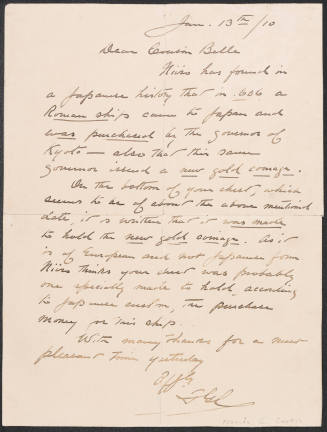 Jan. 13th/10
Dear Cousin Belle
Niiro has found in
a Japanese history that in 606 a
Roman ship came to Japan and
was purchased by the governor of
Kyoto — also that this same
governor issued a new gold coinage.
On the bottom of your chest, which
seems to be of about the above mentioned
date, it is written that it was made
to hold the new gold coinage. As it
is of European and not Japanese form
Niiro thinks your chest was probably
one specially made to hold, according
to Japanese custom, the purchase
money for this ship.
With many thanks for a most
pleasant time yesterday
Affly